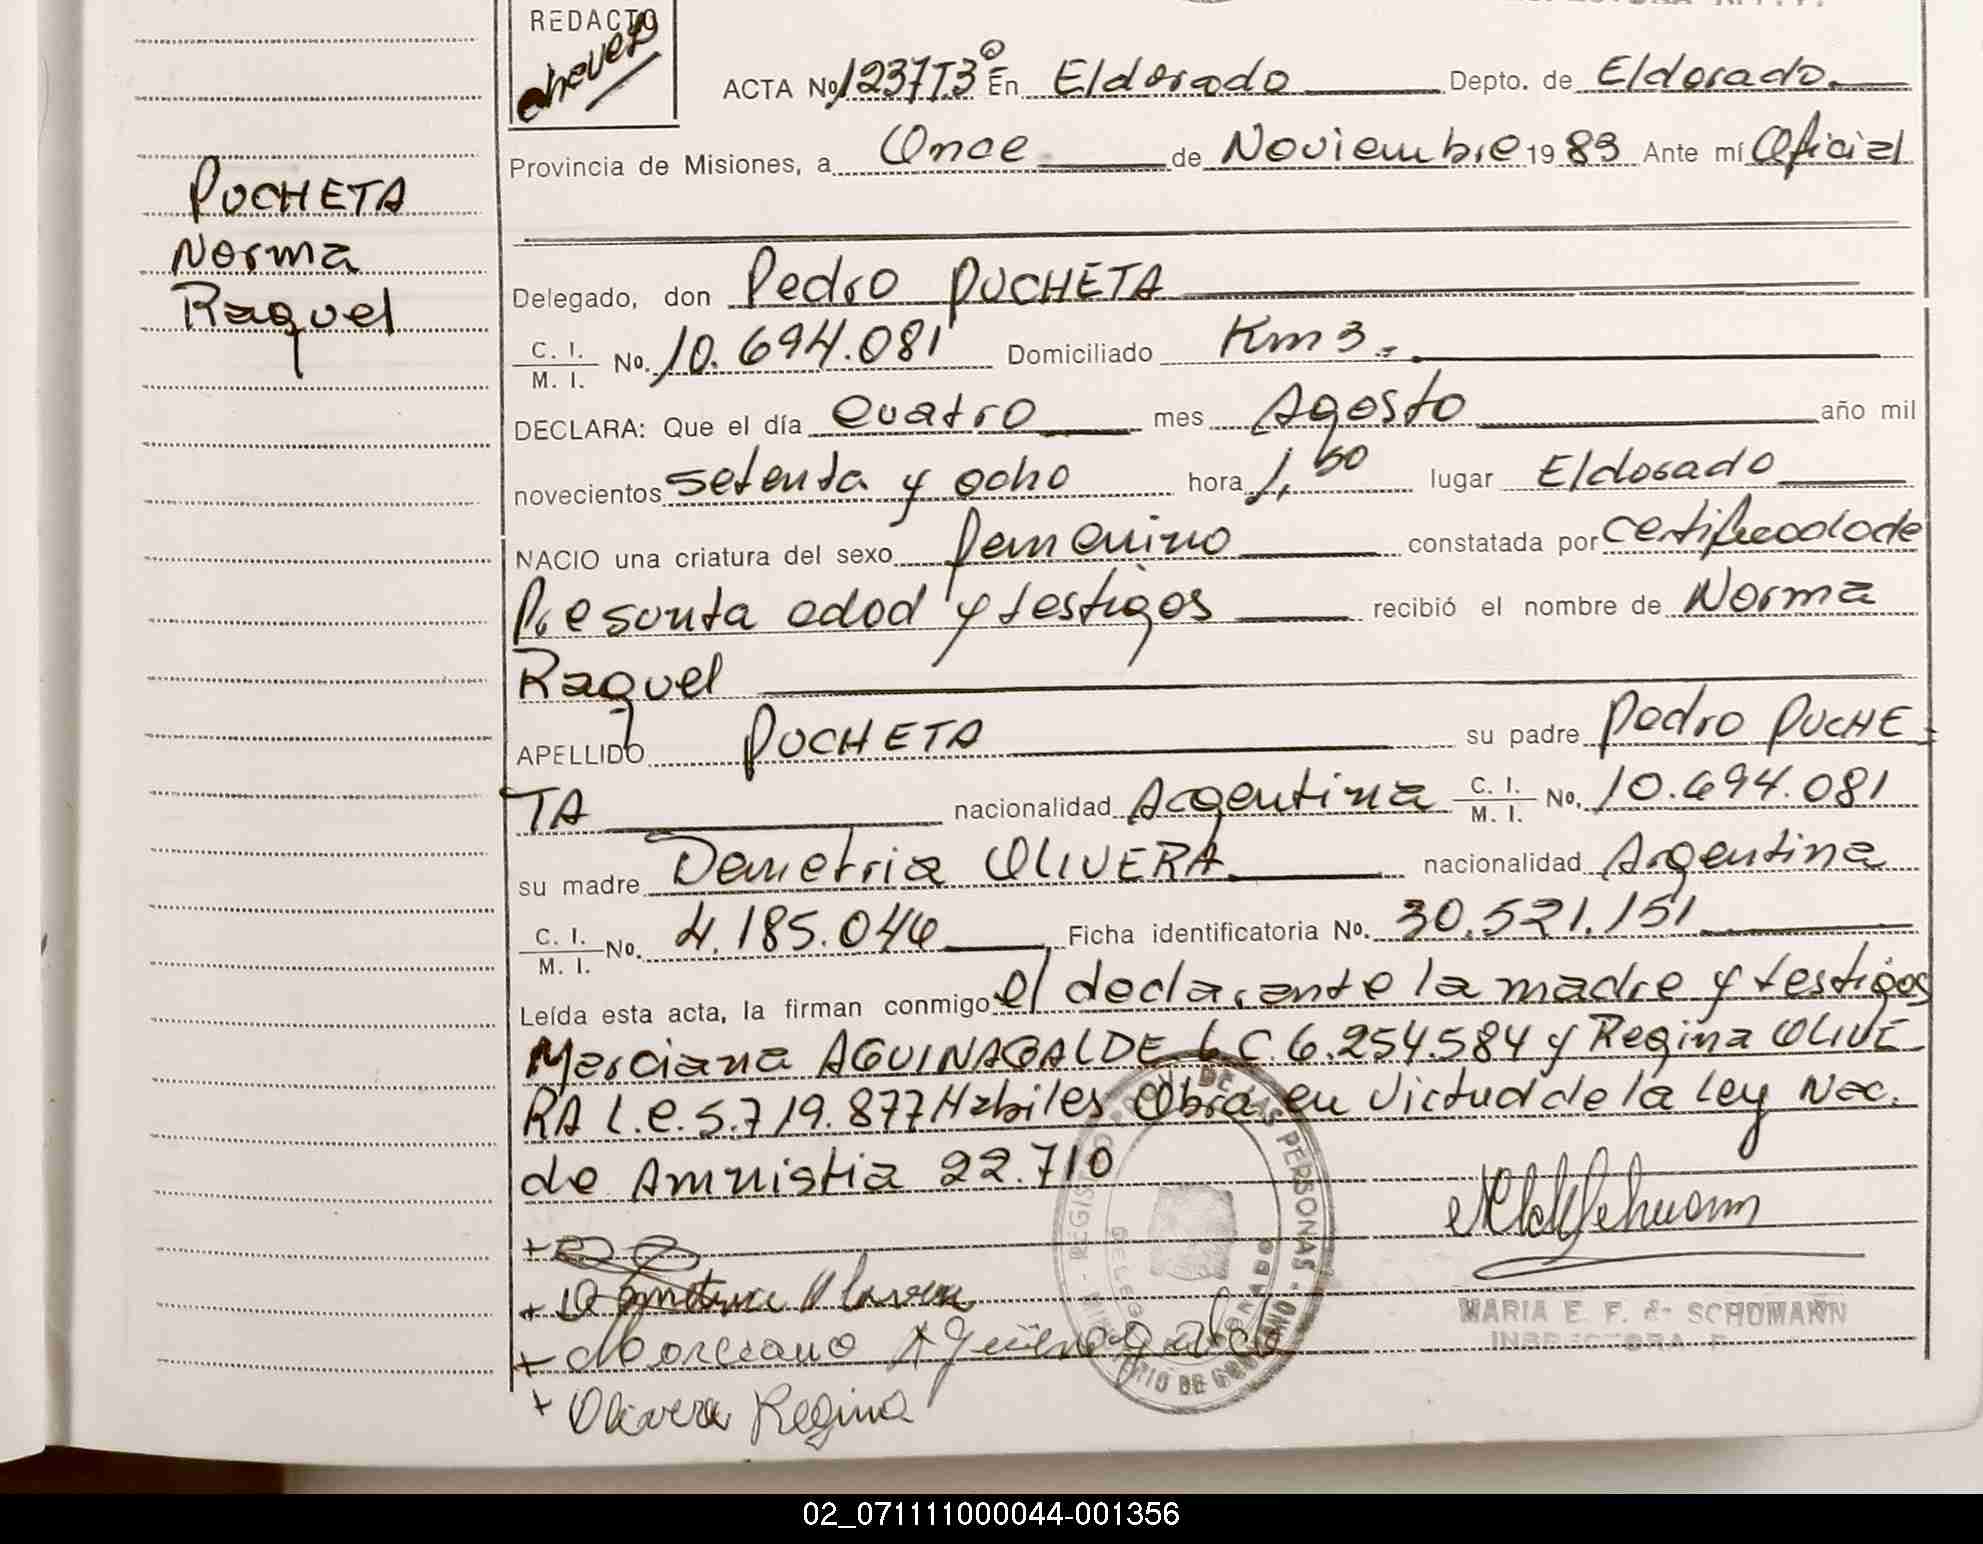 REDACTO
ACTA No 1237T3º En Eldorado Depto. de Eldorado.
Provincia de Misiones, a Once de Noviembre 19 83 Ante mí Oficial
PUCHETA
Norma
Raquel
Delegado, don Pedro PUCHETA
C. I. / M. I. No. 10.694.081 Domiciliado Km 3.
DECLARA: Que el día cuatro mes Agosto año mil
novecientos setenta y ocho hora 1,50 lugar Eldorado
NACIO una criatura del sexo femenino constatada por certificado de
Presunta edad y testigos recibió el nombre de Norma
Raquel
APELLIDO PUCHETA su padre Pedro PUCHE
TA nacionalidad Argentina C. I. / M. I. No. 10.694.081
su madre Demetria OLIVERA nacionalidad Argentina
C. I. / M. I. No. 4.185.046 Ficha identificatoria No. 30.521.151
Leída esta acta, la firman conmigo el declarante la madre y testigos
Marciana AGUINAGALDE L C. 6.254.584 y Regina OLIVE
RA L.C. 5.719.877 Habiles Obra en Virtud de la Ley Nac.
de Amnistia 22.710
MARIA E. F. de SCHOMANN
INSPECTORA
Olivera Regina
02_071111000044-001356